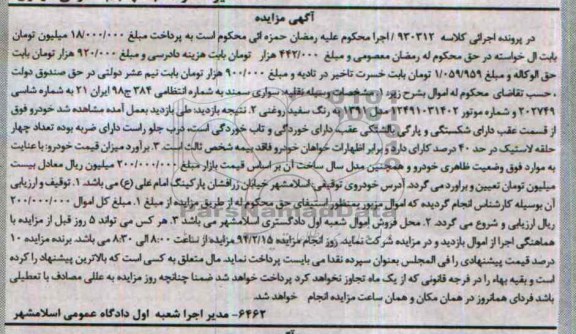 آگهی مزایده
در پرونده اجرائی کلاسه ۹۳۰۳۱۲ / اجرا محکوم علیه رمضان حمزه ائی محکوم است به پرداخت مبلغ ۱۸/۰۰۰/۰۰۰ میلیون تومان
بابت ال خواسته در حق محکوم له رمضان معصومی و مبلغ ۴۴۲/۰۰۰ هزار تومان بابت هزینه دادرسی و مبلغ ۹۲۰/۰۰۰ هزار تومان بابت
حق الوکاله و مبلغ ۱/۰۵۹/۹۵۹ تومان بابت خسرت تاخیر در تادیه و مبلغ ۹۰۰/۰۰۰ هزار تومان بابت نیم عشر دولتی در حق صندوق دولت
، حسب تقاضای محکوم له اموال بشرح زیر: ۱. مشخصات وسیله نقلیه: سواری سمند به شماره انتظامی ۳۸۴ ج۹۸ ایران ۲۱ به شماره شاسی
۲۰۲۷۴۹ و شماره موتور ۱۲۴۹۱۰۳۱۴۰۲ مدل به رنگ سفید روغنی ۲. نتیجه بازدید: طی بازدید بعمل آمده مشاهده شد خودرو فوق
از قسمت عقب دارای شکستگی و پارگی بالشتکی عقب دارای خوردگی و تاب خوردگی است، درب جلو راست دارای ضربه بوده تعداد چهار
حلقه لاستیک در حد ۴۰ درصد کارای دارد و برابر اظهارات خواهان خودرو فاقد بیمه شخص ثالث است ۳. برآورد میزان قیمت خودرو: با عنایت
به موارد فوق وضعیت ظاهری خودرو و همچنین مدل سال ساخت آن بر اساس قیمت بازار مبلغ ۲۰۰/۰۰۰/۰۰۰ میلیون ریال معادل بیست
میلیون تومان تعیین و براورد می گردد. آدرس خودروی توقیفی: اسلامشهر خیابان زرافشان پارکینگ امام علی (ع) می باشد. ۱. توقیف و ارزیابی
آن بوسیله کارشناس انجام گردیده که اموال مزبور بمنظور استیفای حق محکوم له از طریق مزایده از مبلغ ۱. مبلغ کل اموال ۲۰۰/۰۰۰/۰۰۰
ریال ارزیابی و شروع می گردد. ۲. محل فروش اموال شعبه اول دادگستری اسلامشهر می باشد. ۳. هر کس می تواند ۵ روز قبل از مزایده با
هماهنگی اجرا از اموال بازدید و در مزایده شرکت نماید. روز انجام مزایده ۹۴/۲/۱۵ مزایده از ساعت ۸:۰۰ الی ۸:۳۰ می باشد. برنده مزایده ۱۰
درصد قیمت پیشنهادی را فی المجلس بعنوان سپرده نقدا می بایست پرداخت نماید. مال متعلق به کسی است که بالاترین پیشنهاد را کرده
است و بقیه بهاء را در فرجه قانونی که از یک ماه تجاوز نخواهد کرد پرداخت خواهد شد ضمنا چنانچه روز مزایده به عللی مصادف با تعطیلی
باشد فردای همانروز در همان مکان و همان ساعت مزایده انجام خواهد شد.
۶۴۶۲- مدیر اجرا شعبه اول دادگاه عمومی اسلامشهر